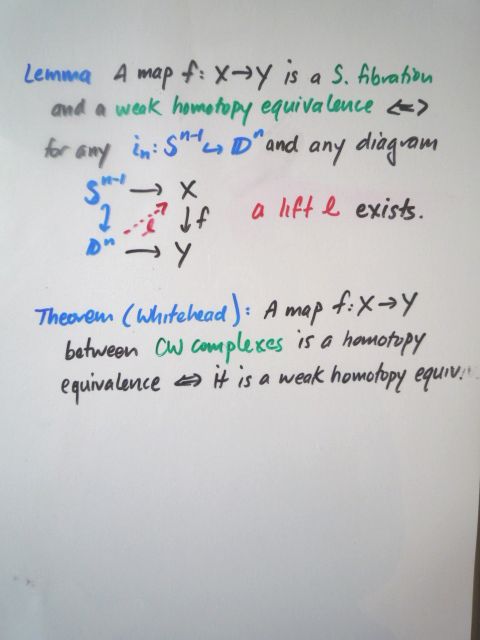 Lemma A map f: X→Y is a S. fibration
and a weak homotopy equivalence <=>
for any iₙ: Sⁿ⁻¹ ↪ Dⁿ and any diagram
Sⁿ⁻¹ → X
↓ l ↓ f a lift l exists.
Dⁿ → Y
Theorem (Whitehead): A map f: X→Y
between CW complexes is a homotopy
equivalence <=> it is a weak homotopy equiv.